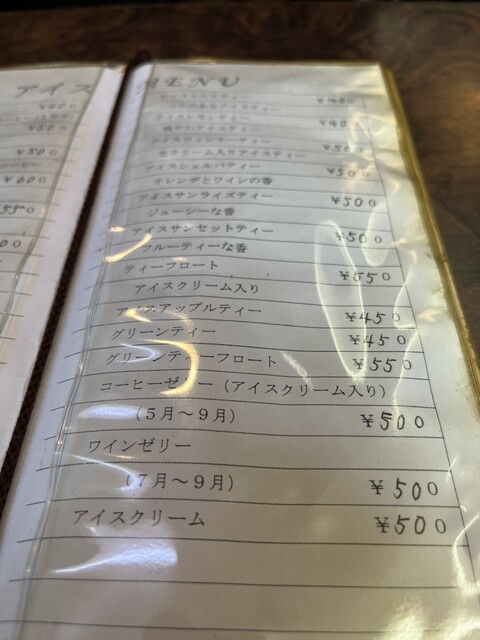 アイス
MENU
¥500
¥600
アイスレモンティー
アイスウィンナーティー
生クリーム入りアイスティー ¥500
アイスシェルパティー ¥500
オレンヂとワインの香
アイスサンライズティー ¥500
ジューシーな香
アイスサンセットティー ¥500
フルーティーな香
ティーフロート ¥550
アイスクリーム入り
アイスアップルティー ¥450
グリーンティー ¥450
グリーンティーフロート ¥550
コーヒーゼリー（アイスクリーム入り）
（5月～9月） ¥500
ワインゼリー
（7月～9月） ¥500
アイスクリーム ¥500